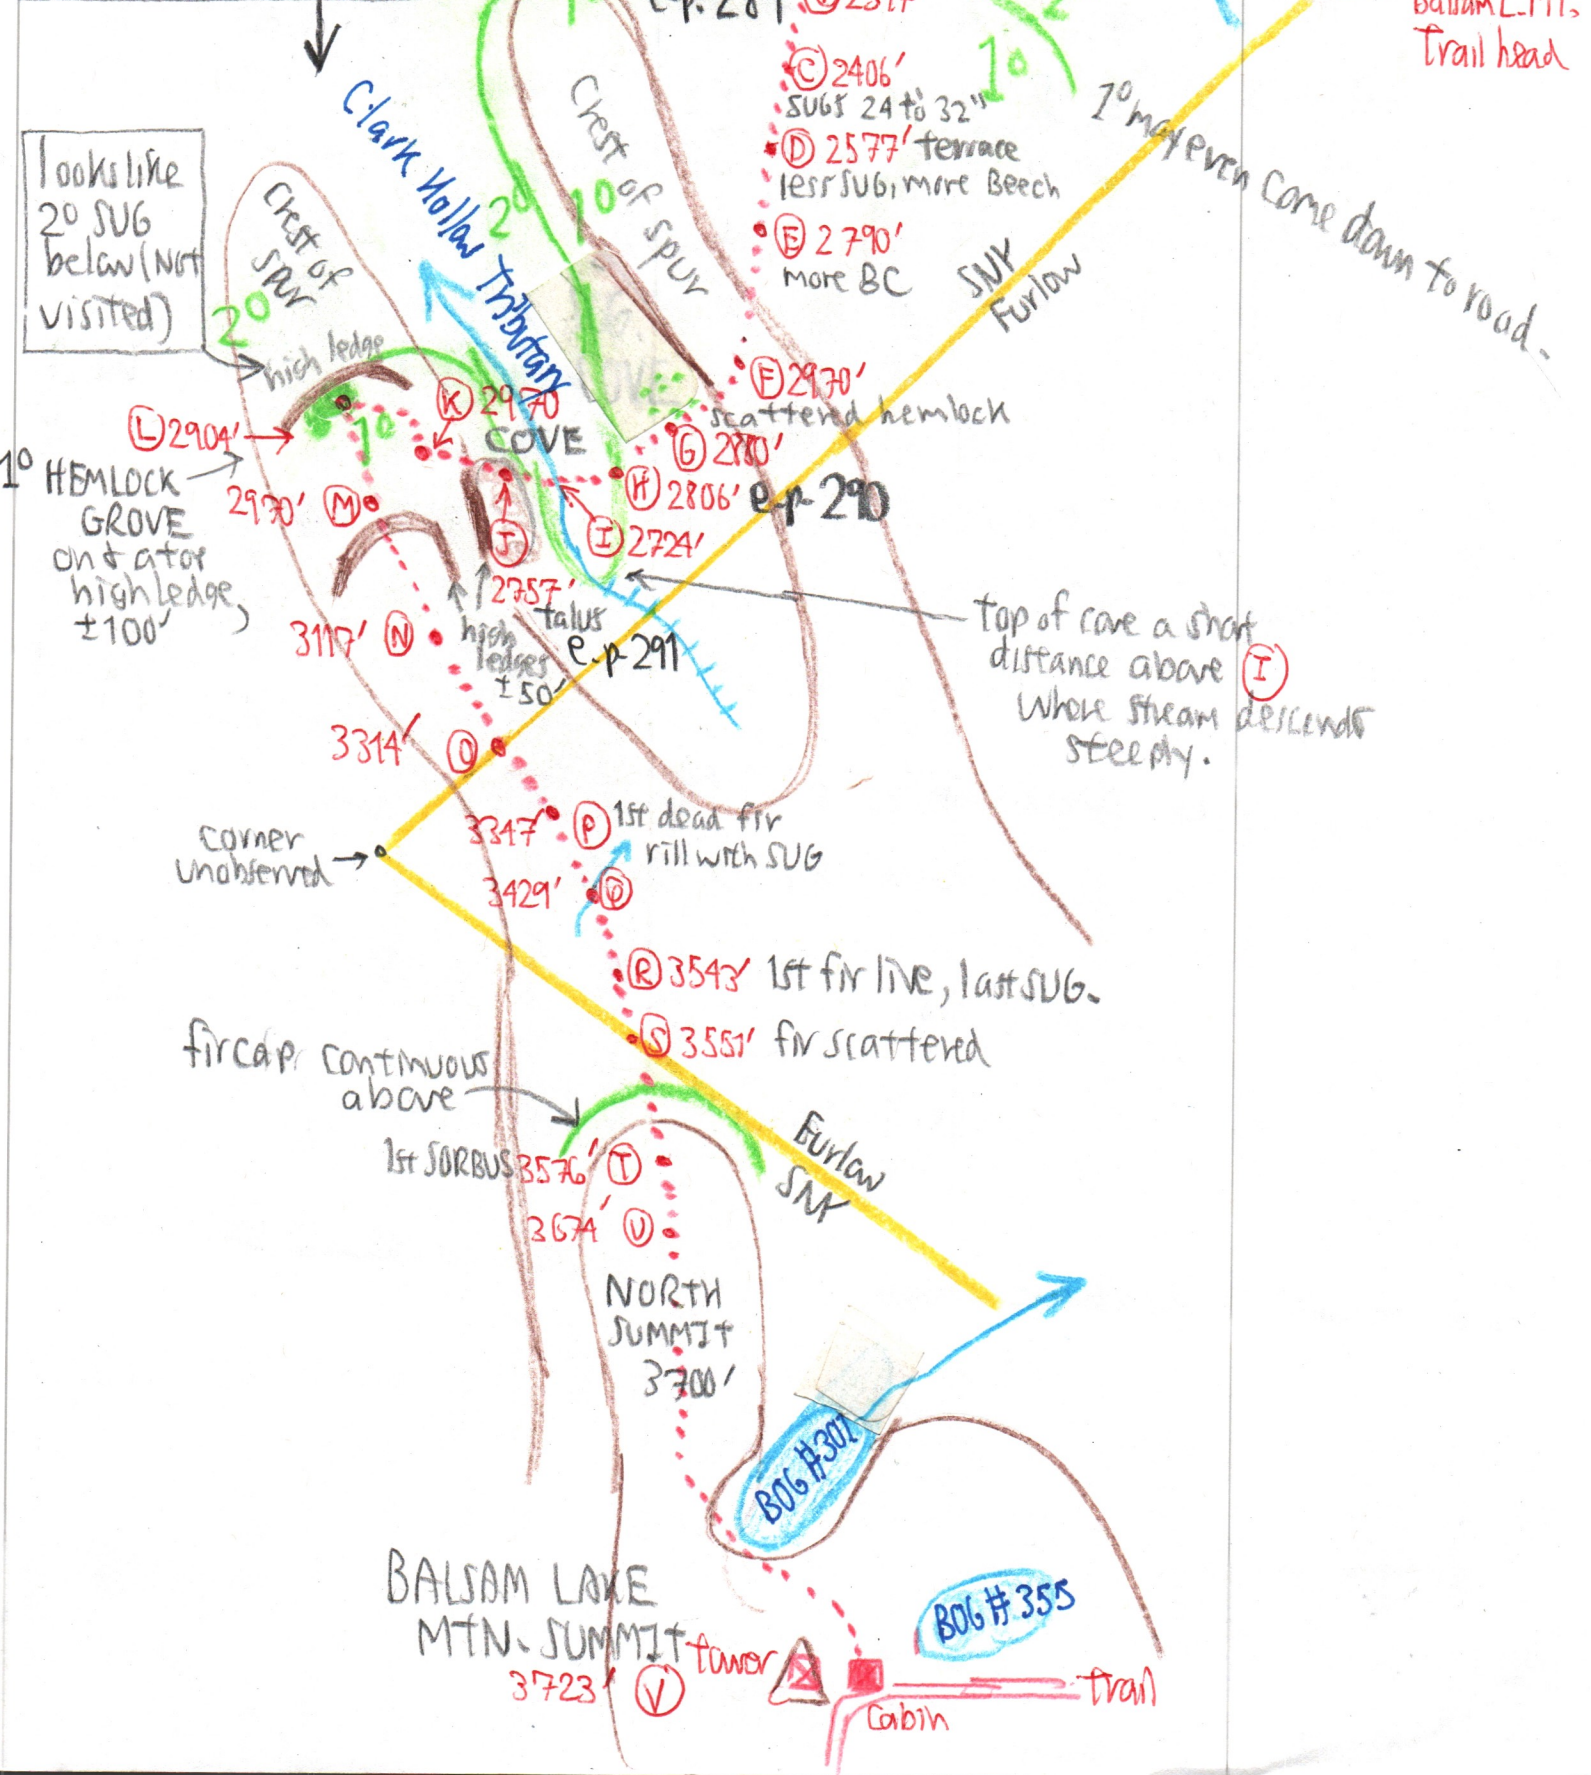 Balsam L. Mt.
Trail head
C 2406'
SUGS 24 to 32"
D 2577' terrace
less SUG, more Beech
E 2790'
more BC
1°
1°
2°
1° may even come down to road.
Clark Hollow Tributary
Crest
of spur
2° 1°
looks like
2° SUG
below (Not
visited)
Crest of
spur
2°
high ledge
SNY
Furlow
COVE
F 2970'
scattered hemlock
G 2880'
K 2970
COVE
L 2904'
1°
H 2806'
e.p. 290
1° HEMLOCK
GROVE
on & atop
high ledge,
±100'
2970' M
I 2724'
J
2757'
talus
high
ledges
±50'
e.p. 291
3117' N
top of cove a short
distance above I
where stream descends
steeply.
3314' O
corner
unobserved
3347' P 1st dead fir
rill with SUG
3429' Q
R 3543' 1st fir live, last SUG.
S 3551' fir scattered
fir cap continuous
above
Furlow
SNY
1st SORBUS 3576' T
3674' U
NORTH
SUMMIT
3700'
BOG #302
BOG #355
BALSAM LAKE
MTN. SUMMIT
3723' V
tower
Cabin
trail